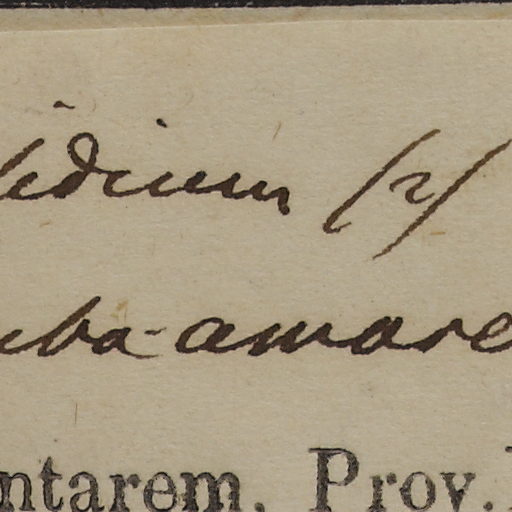 sidium (2)
uba-amare
ntarem, Prov.